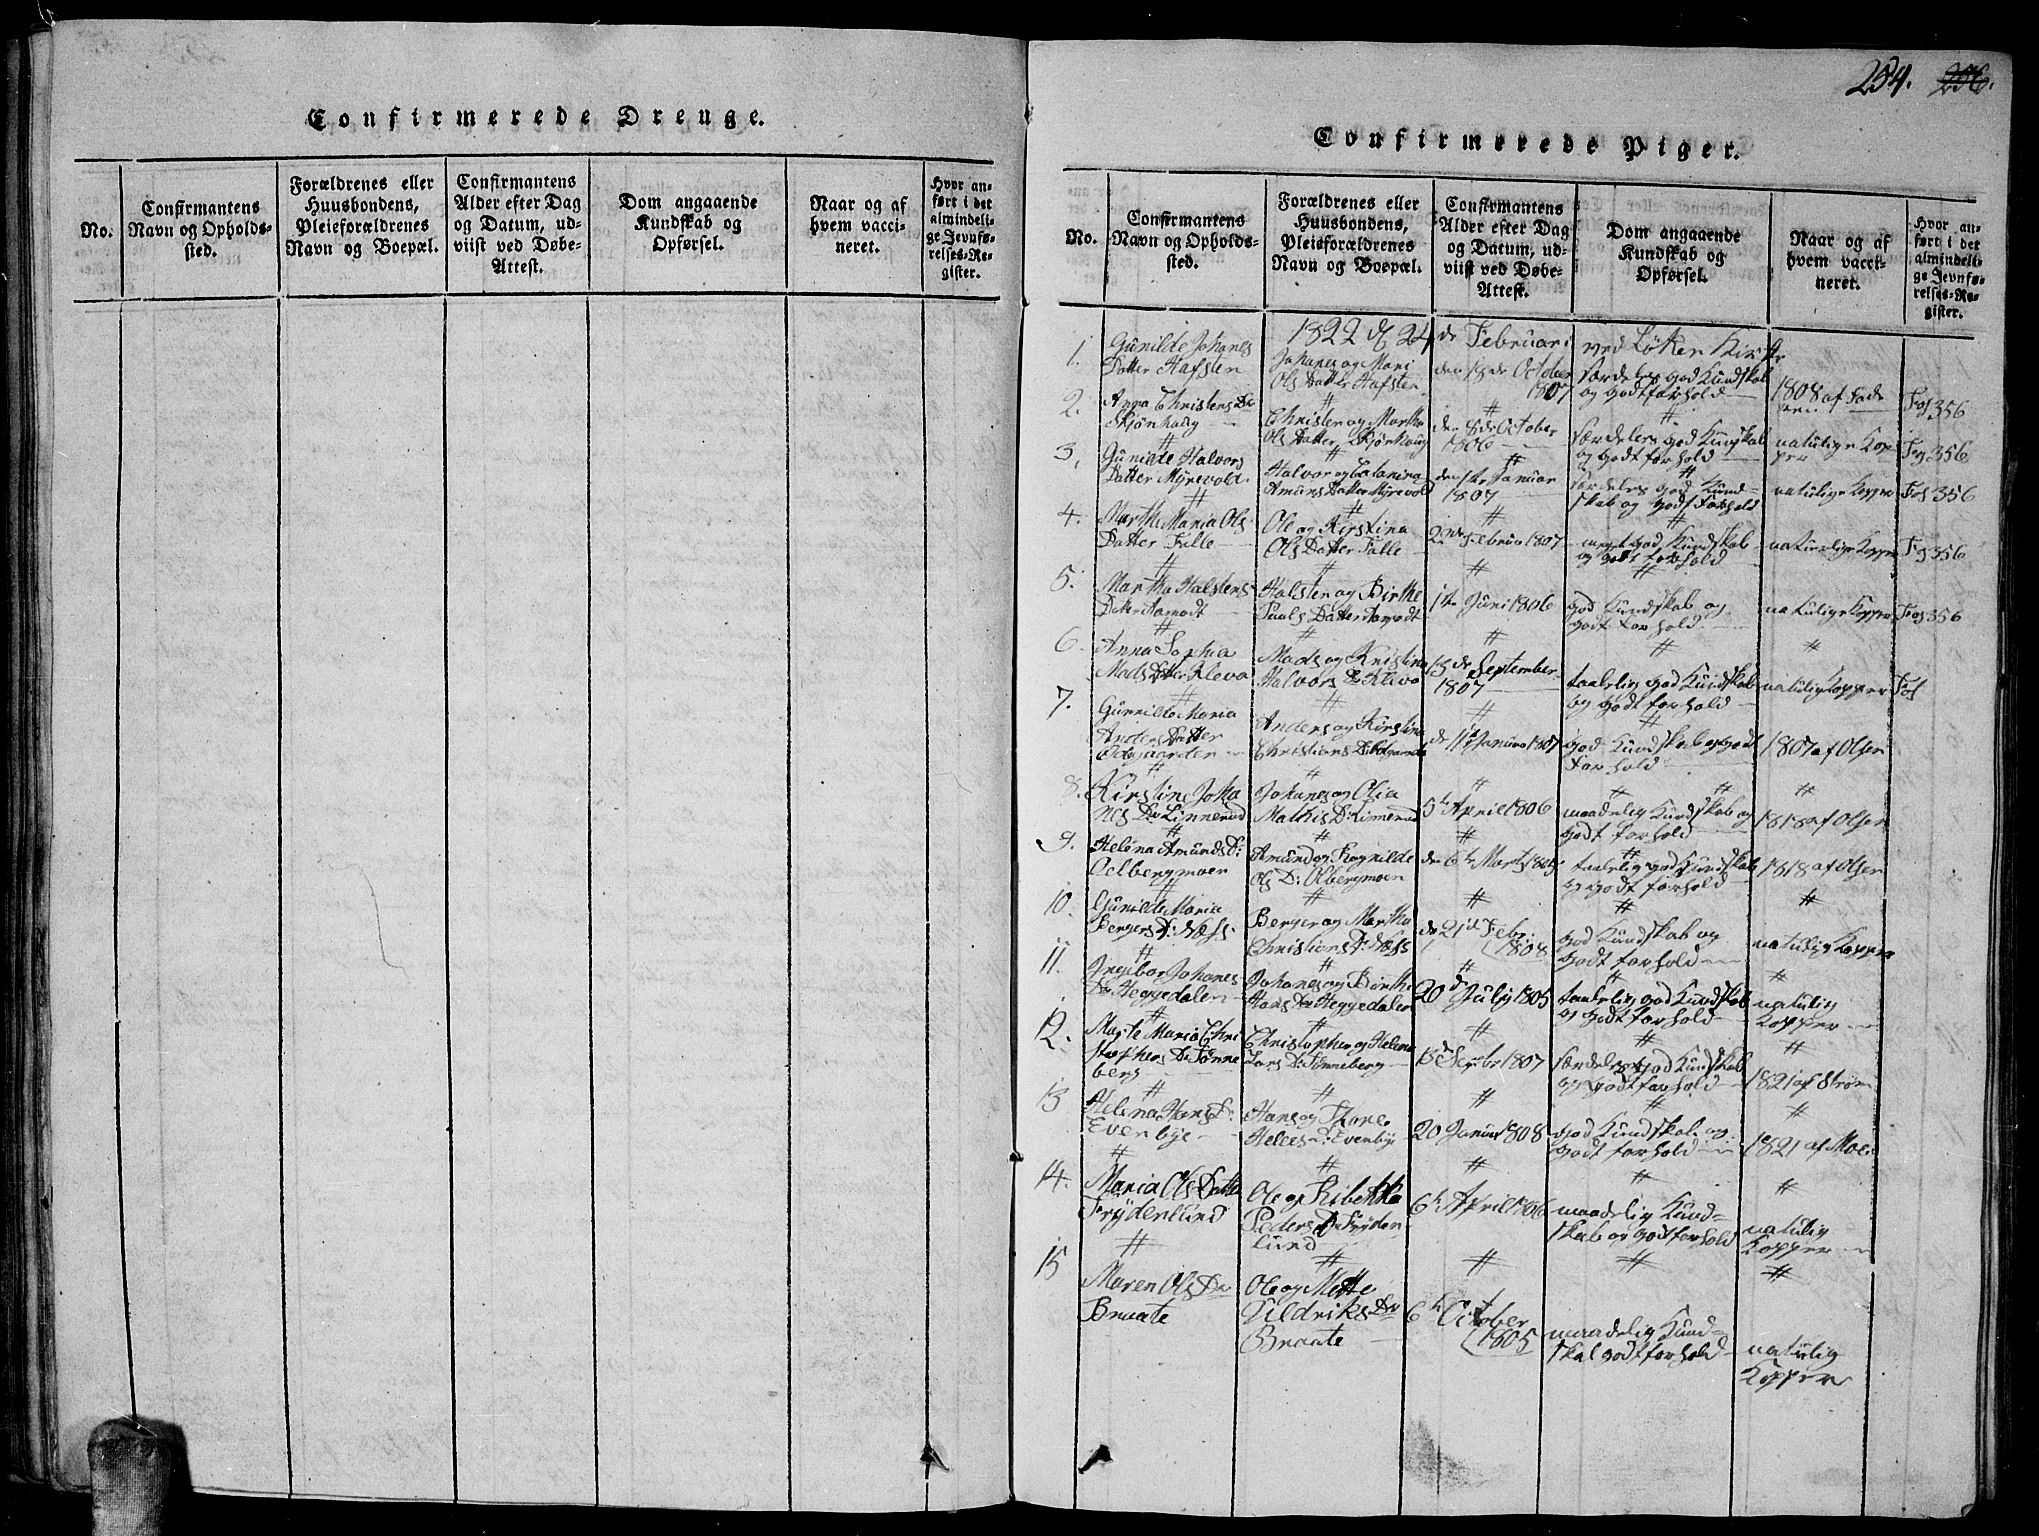 254. 256.
Confirmerede Drenge.
No.
Confirmantens
Navn og Opholds-
sted.
Forældrenes eller
Huusbondens,
Pleieforældrenes
Navn og Boepæl.
Confirmantens
Alder efter Dag
og Datum, ud-
viist ved Døbe-
Attest.
Dom angaaende
Kundskab og
Opførsel.
Naar og af
hvem vacci-
neret.
Hvor an-
ført i det
almindeli-
ge Jevnfø-
relses-Re-
gister.
Confirmerede Piger.
No.
Confirmantens
Navn og Opholds-
sted.
Forældrenes eller
Huusbondens,
Pleieforældrenes
Navn og Boepæl.
Confirmantens
Alder efter Dag
og Datum, ud-
viist ved Døbe-
Attest.
Dom angaaende
Kundskab og
Opførsel.
Naar og af
hvem vacci-
neret.
Hvor an-
ført i det
almindeli-
ge Jevnfø-
relses-Re-
gister.
1822 d 24de Februari ved Løken Kirke
1.
Gunilde Johanes
Datter Hafsten
Johanes og Mari
Ols Datter Hafsten
den 18de October
1807
særdeles god Kundskab
og godt forhold
1808 af
Fog 356
2.
Anna Christens Dr
Skjønhaug
Christen og Marthe
Ols Datter Skjønhaug
den 8de October
1806
særdeles god Kunskab
og godt forhold
natulige Kop
per
Fog 356
3.
Gunilde Halvors
Datter Myrevold
Halvor og Catarina
Amuns Datter Myrevold
den 1te Januar
1807
særdeles god Kund-
skab og godt forhold
natulige Kopper
Fog 356
4.
Marthe Maria Ols
Datter Falle
Ole og Kirstina
Ols Datter Falle
22de Februa 1807
meget god Kundskab
og godt forhold
naturlige Kopper
Fog 356
5.
Martha Halstens
Datter Aamodt
Halsten og Birthe
Paals Datter Aamodt
1te Juni 1806
god Kundskab og
godt forhold
natulige Kopper
Fog 356
6.
Anna Sophia
Mads Datter Kleva
Mads og Kristina
Halvors Dr Kleva
13de September
1807
taalelig god Kundskab
og godt forhold
natulig Kopper
Fog
7.
Gunnilde Maria
Anders Datter
Anders og Kirstine
Christians Dr
de 11te Janua 1807
god Kundskab og godt
forhold
1807 af Olsen
8.
Kirstin Joha
nes Dr Linnerud
Johanes og Olia
Mathis Dr Linnerud
5te April 1806
maadelig Kundskab og
godt forhold
1818 af Olsen
9.
Helena Amunds Dr:
Oelbergmoen
Amund og Ragnilde
Ols D: Olbergmoen
den 6te Marts 1805
taalelig god Kundskab
og godt forhold
1818 af Olsen
10.
Gunilde Maria
Bergers D: Næss
Berger og Martha
Christians D: Næss
de 21de Febr:
1808
god Kundskab og
godt forhold
natulig Kopper
11.
Ingebor Johanes
Dr Heggedalen
Johanes og Birthe
Hans Dr Heggedalen
20de July 1805
taalelig god Kundskab
og godt forhold
natulig
Kopper
12.
Marte Maria Chri
stophers Dr Tønne
berg
Christopher og Helena
Lars D: Tønneberg
13de Septbr 1807
særdeles god Kundskab
og godt forhold
1821 af Strøm
13
Helena Hans D:
Evenbye
Hans og Thore
D: Evenbye
20 Janua 1808
god Kundskab og
godt forhold
1821 af Moe
14.
Maria Ols Datter
Frydenlund
Ole og Ribekka
Peders Dr Fryden
lund
6te April 1806
maadelig Kund-
skab og godt forhold
natulig
Kopper
15
Maren Ols Dr
Braate
Ole og Mette
Uldriks Dr
Braate
6te October
1805
maadelig Kund-
skab godt forhold
natulig
Kopper